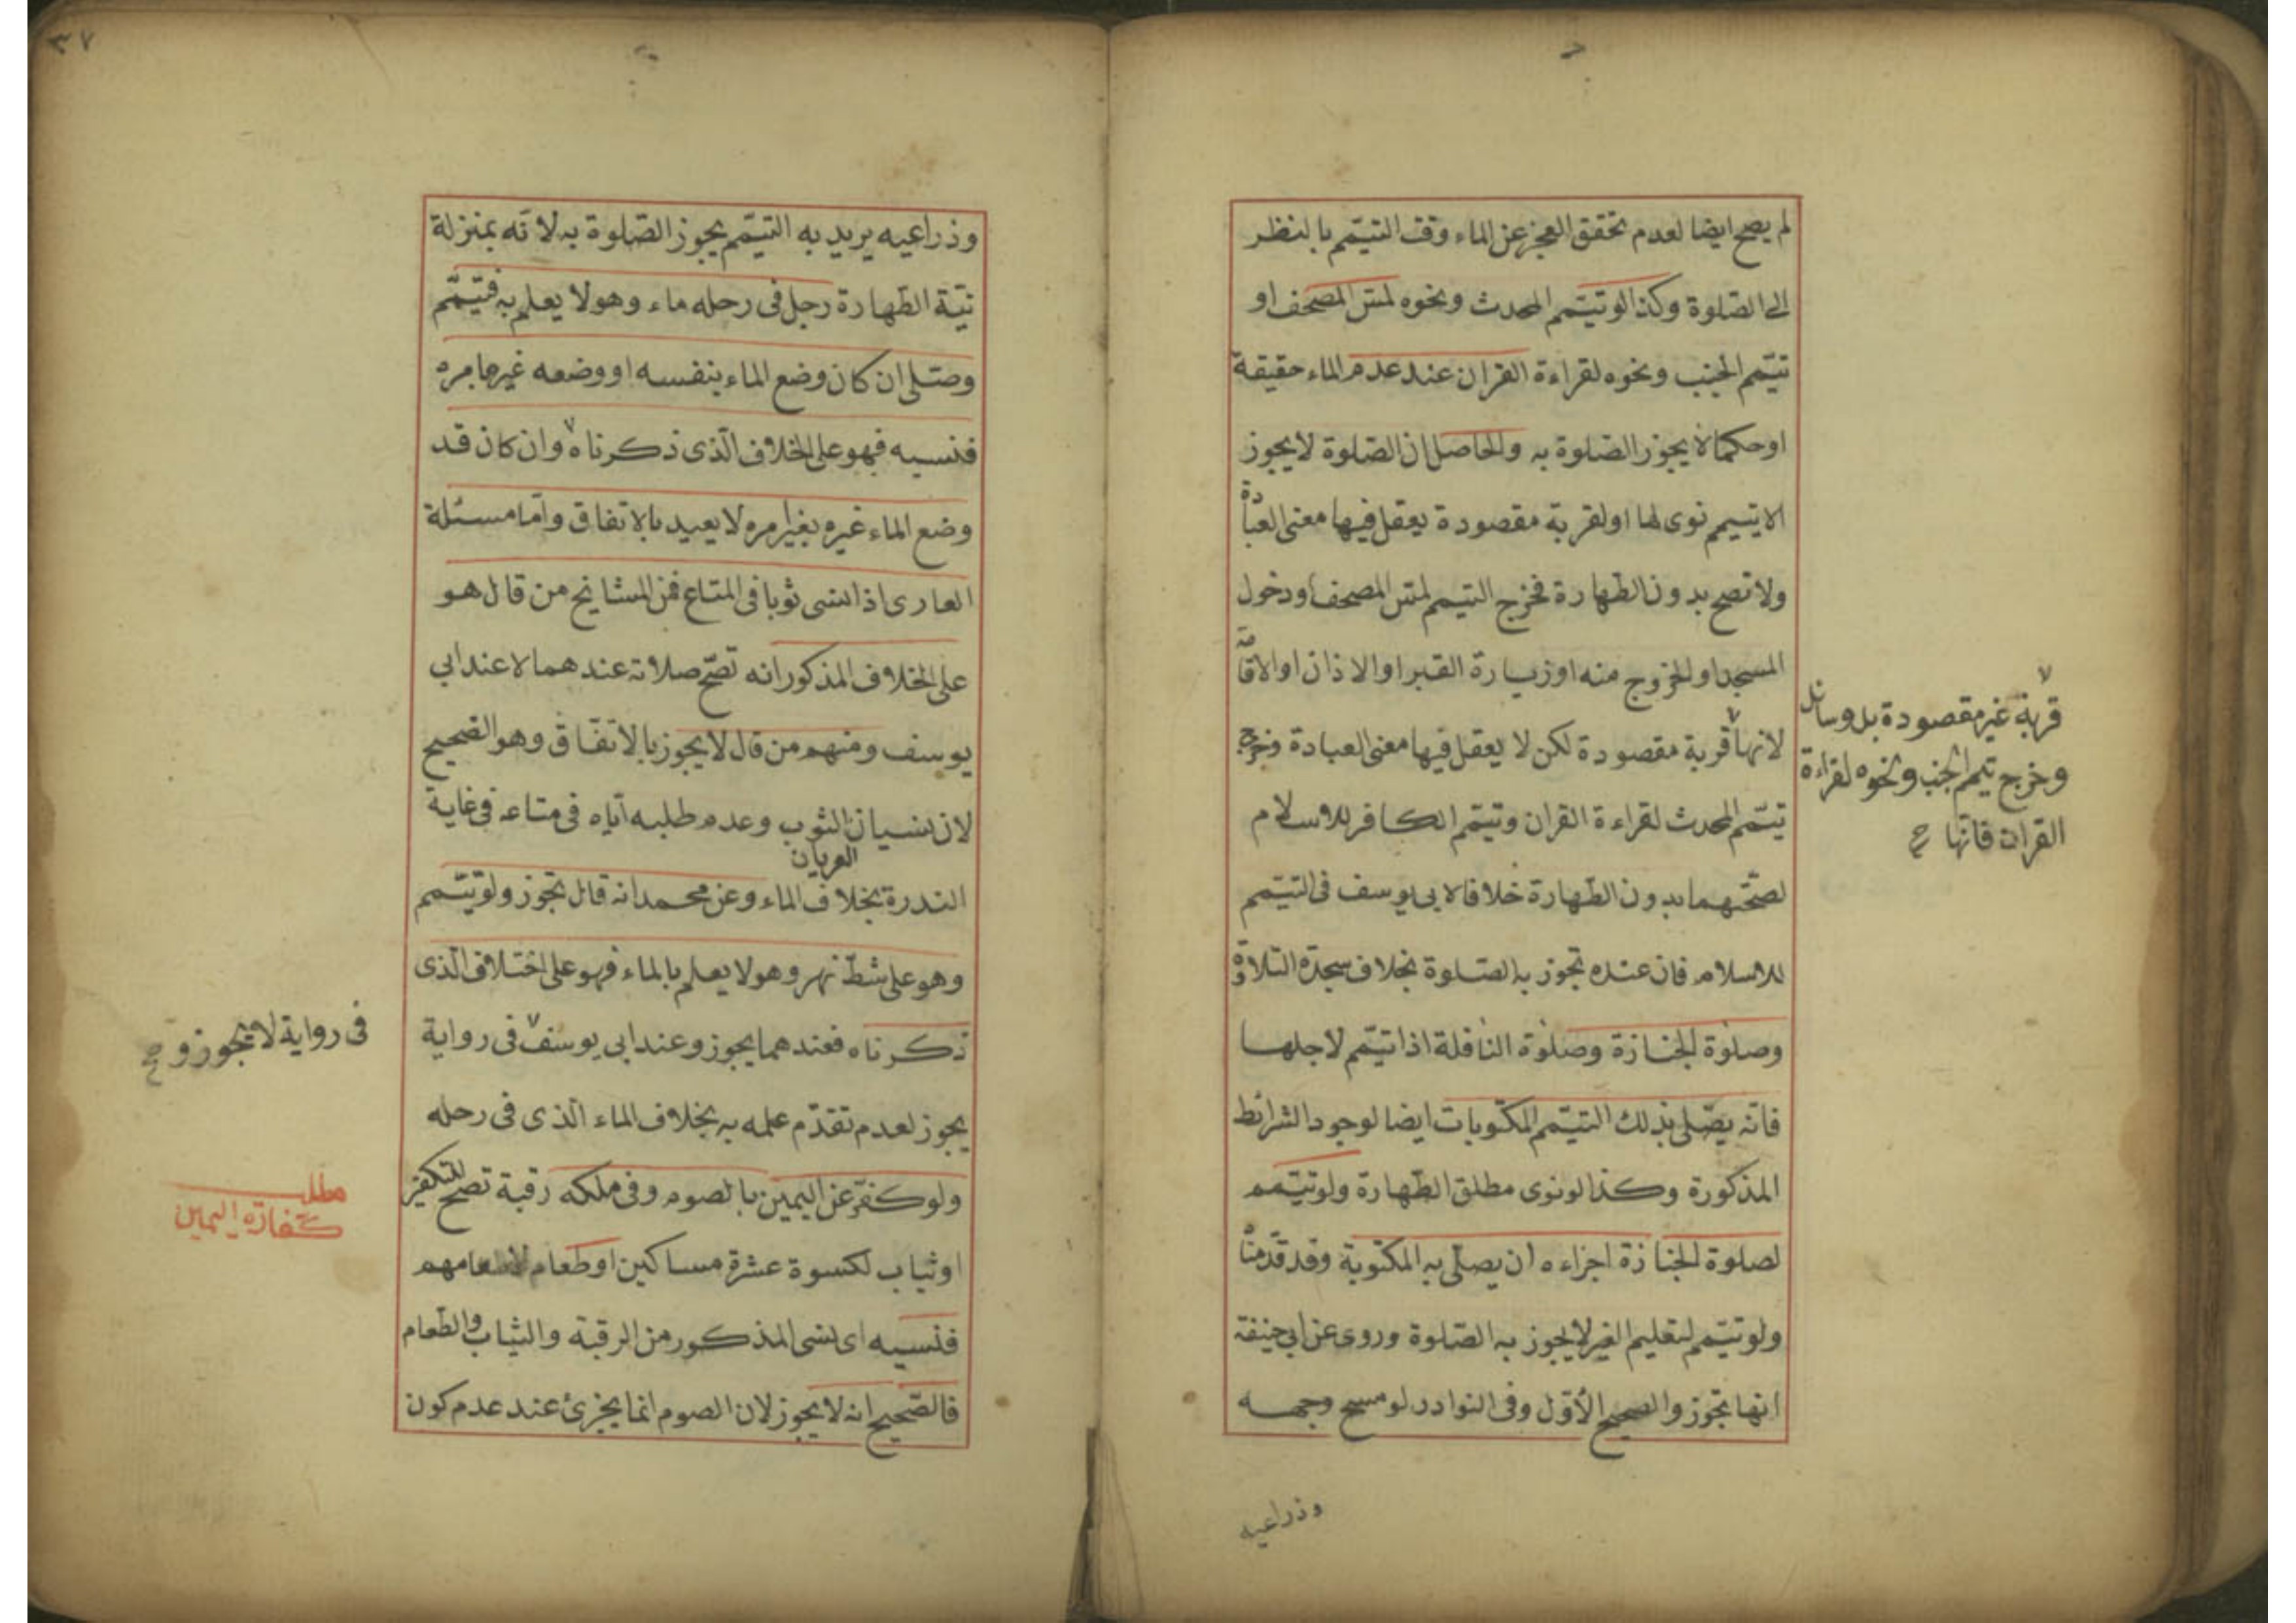 لم يصح ايضا لعدم تحقق العجز عن الماء وقت التيمّم بالنظر
الى الصّلوة وكذا لو تيتمم المحدث ونحوه لمسّ المصحف او
تيمّم الجنب ونحوه لقراءة القران عند عدم الماء حقيقة
اوحكما لا يجوز الصّلوة به والحاصل ان الصّلوة لا يجوز
الا بتيمم نوى لها او لقربة مقصودة يعقل فيها معنى العبادة
ولا تصح بدون الطّهارة فخرج التيمم لمسّ المصحف او دخول
المسجد او الخروج منه او زيارة القبر او الاذان او الاقامة
لانها ٧ قربة مقصودة لكن لا يعقل فيها معنى العبادة وخرج
تيمّم المحدث لقراءة القران وتيمّم الكافر للاسلام
لصحّتهما بدون الطّهارة خلافا لابى يوسف فى التيمّم
للاسلام فان عنده تجوز به الصّلوة بخلاف سجدة التلاوة
وصلوة الجنازة وصلوة النافلة اذا تيمّم لاجلها
فانّه يصّلى بذلك التيمّم المكتوبات ايضا لوجود الشرائط
المذكورة وكذا لو نوى مطلق الطّهارة ولو تيمّم
لصلوة الجنازة اجزاءه ان يصلّى به المكتوبة وقد قدّمنا
ولو تيمّم لتعليم الغير لا يجوز به الصّلوة وروى عن ابى حنيفة
انها تجوز والصحيح الاوّل وفى النوادر لو مسح وجهه
وذراعيه
٧
قربة غير مقصودة بل وسائل
وخرج تيمم الجنب ونحوه لقراءة
القران فانّها صح
٣٧
وذراعيه يريد به التيمّم يجوز الصّلوة به لانّه بمنزلة
نيّة الطّهارة رجل فى رحله ماء وهو لا يعلم به فتيمّم
وصلّى ان كان وضع الماء بنفسه او وضعه غيره بامره
فنسيه فهو على الخلاف الّذى ذكرناه ٧ وان كان قد
وضع الماء غيره بغير امره لا يعيد بالاتفاق وامّا مسئلة
العارى اذا نسى ثوبا فى المتاع فمن المشايخ من قال هو
على الخلاف المذكور انه تصّح صلاته عندهما لا عند ابى
يوسف ومنهم من قال لا يجوز بالاتفّاق وهو الصّحيح
لان نسيان الثوب وعدم طلبه ايّاه فى متاعه فى غاية
العريان
الندرة بخلاف الماء وعن محمد انه قال تجوز ولو تيمّم
وهو على شطّ نهر وهو لا يعلم بالماء فهو على اختلاف الّذى
ذكرناه فعندهما يجوز وعند ابى يوسف ٧ فى رواية
يجوز لعدم تقدّم علمه به بخلاف الماء الّذى فى رحله
ولو كفّر عن اليمين بالصوم وفى ملكه رقبة تصح للتكفير
او ثياب لكسوة عشرة مساكين او طعام لاطعامهم
فنسيه اى نسى المذكور من الرقبة والثياب والطّعام
فالصّحيح انه لا يجوز لان الصوم انما يجزئ عند عدم كون
فى رواية لا يجوز و صح
مطلب
كفارة اليمين